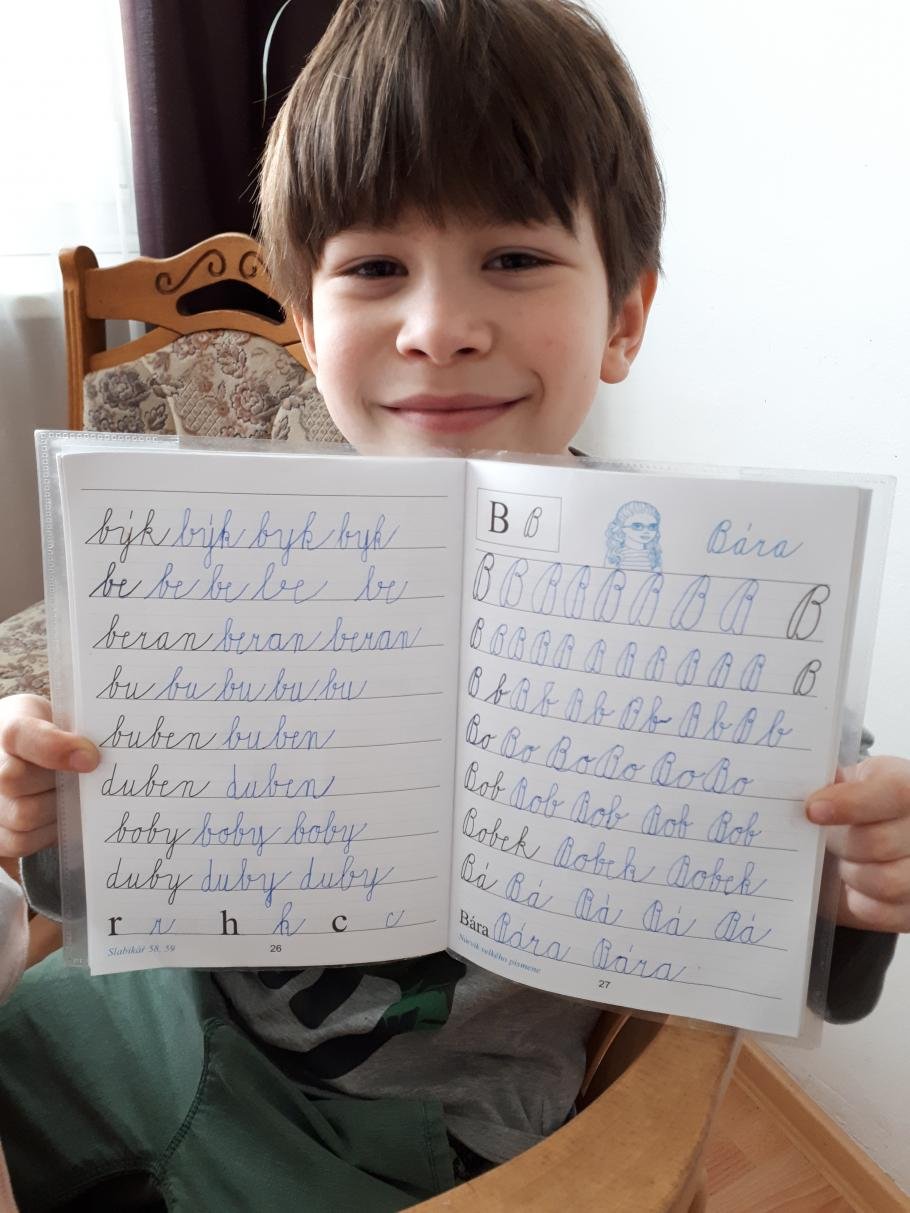 býk býk byk byk
be be be be be
beran beran beran
bu bu bu bu bu
buben buben
duben duben
boby boby boby
duby duby duby
r r h h c c
Slabikář 58, 59
26
B B
Bára
B B B B B B B B B
B B B B B B B B B B B
B b B b B b B b B b B b
Bo Bo Bo Bo Bo Bo
Bob Bob Bob Bob Bob
Bobek Bobek Bobek
Bá Bá Bá Bá Bá
Bára Bára Bára
Nácvik velkého písmene
27